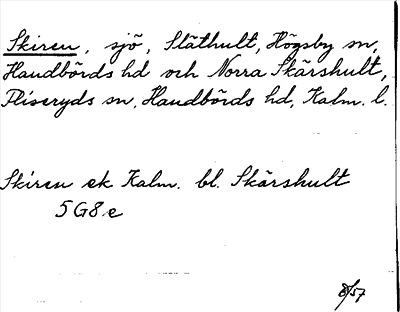 Skiren, sjö, Släthult, Högsby sn,
Handbörds hd och Norra Skärshult,
Fliseryds sn, Handbörds hd, Kalm. l.
Skiren ek Kalm. bl. Skärshult
5G8e
8/57